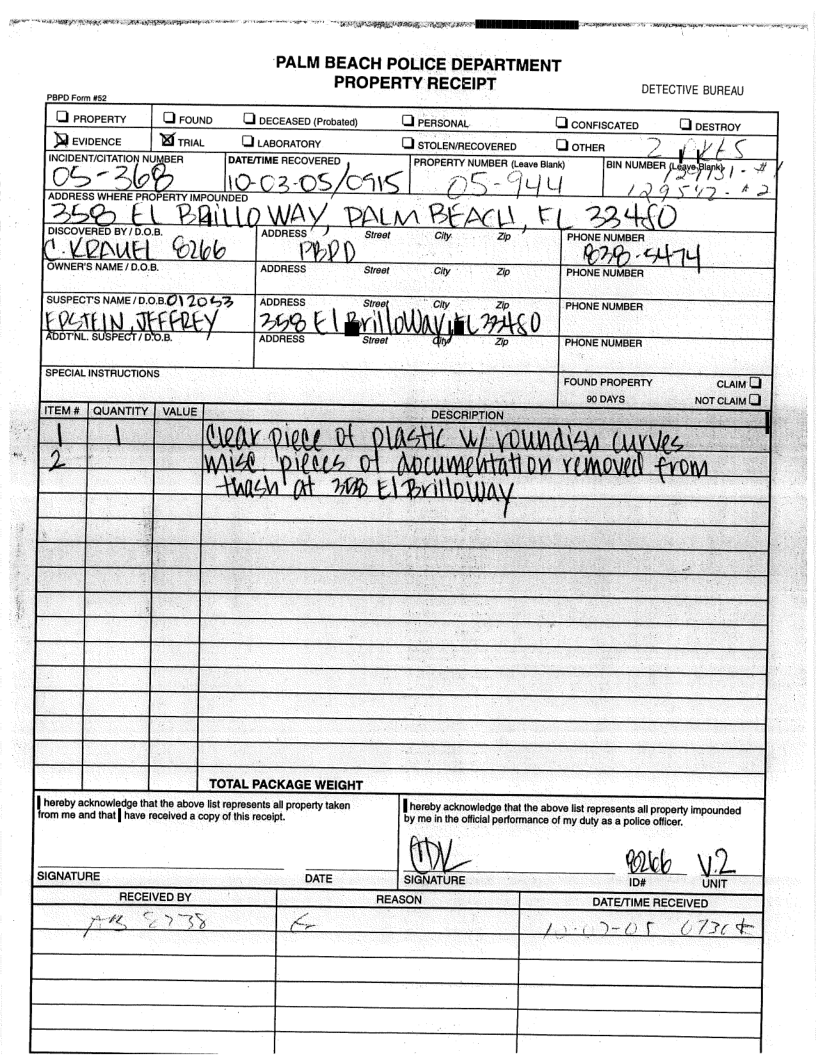 PALM BEACH POLICE DEPARTMENT
PROPERTY RECEIPT
DETECTIVE BUREAU
PBPD Form #52
PROPERTY FOUND DECEASED (Probated) PERSONAL CONFISCATED DESTROY
EVIDENCE TRIAL LABORATORY STOLEN/RECOVERED OTHER 2 PKES
INCIDENT/CITATION NUMBER DATE/TIME RECOVERED PROPERTY NUMBER (Leave Blank) BIN NUMBER (Leave Blank)
05-368 10-03-05/0915 05-944 #1
129542-#2
ADDRESS WHERE PROPERTY IMPOUNDED
358 EL BRILLO WAY, PALM BEACH, FL 33480
DISCOVERED BY / D.O.B. ADDRESS Street City Zip PHONE NUMBER
C. KRAUEL 8266 PBPD 838-5474
OWNER'S NAME / D.O.B. ADDRESS Street City Zip PHONE NUMBER
SUSPECT'S NAME / D.O.B. 012053 ADDRESS Street City Zip PHONE NUMBER
EPSTEIN, JEFFREY 358 El Brillo Way, FL 33480
ADDT'NL. SUSPECT / D.O.B. ADDRESS Street City Zip PHONE NUMBER
SPECIAL INSTRUCTIONS
FOUND PROPERTY CLAIM
90 DAYS NOT CLAIM
ITEM # QUANTITY VALUE DESCRIPTION
1 1 Clear piece of plastic w/ roundish curves
2 misc pieces of documentation removed from
thash at 358 El Brillo Way
TOTAL PACKAGE WEIGHT
I hereby acknowledge that the above list represents all property taken
from me and that I have received a copy of this receipt.
I hereby acknowledge that the above list represents all property impounded
by me in the official performance of my duty as a police officer.
8266 V.2
SIGNATURE DATE SIGNATURE ID# UNIT
RECEIVED BY REASON DATE/TIME RECEIVED
8738